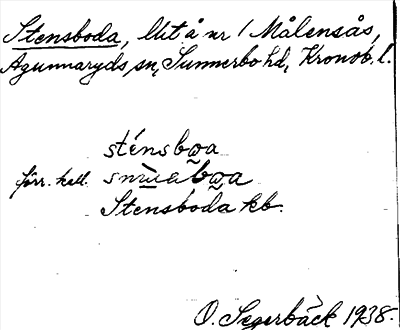 Stensboda, llit å nr 1 Målensås,
Agunnaryds sn, Sunnerbo hd, Kronob. l.
sténsbωa
förr. kall. snùabωa
Stensboda kb.
O. Segerbäck 1938.